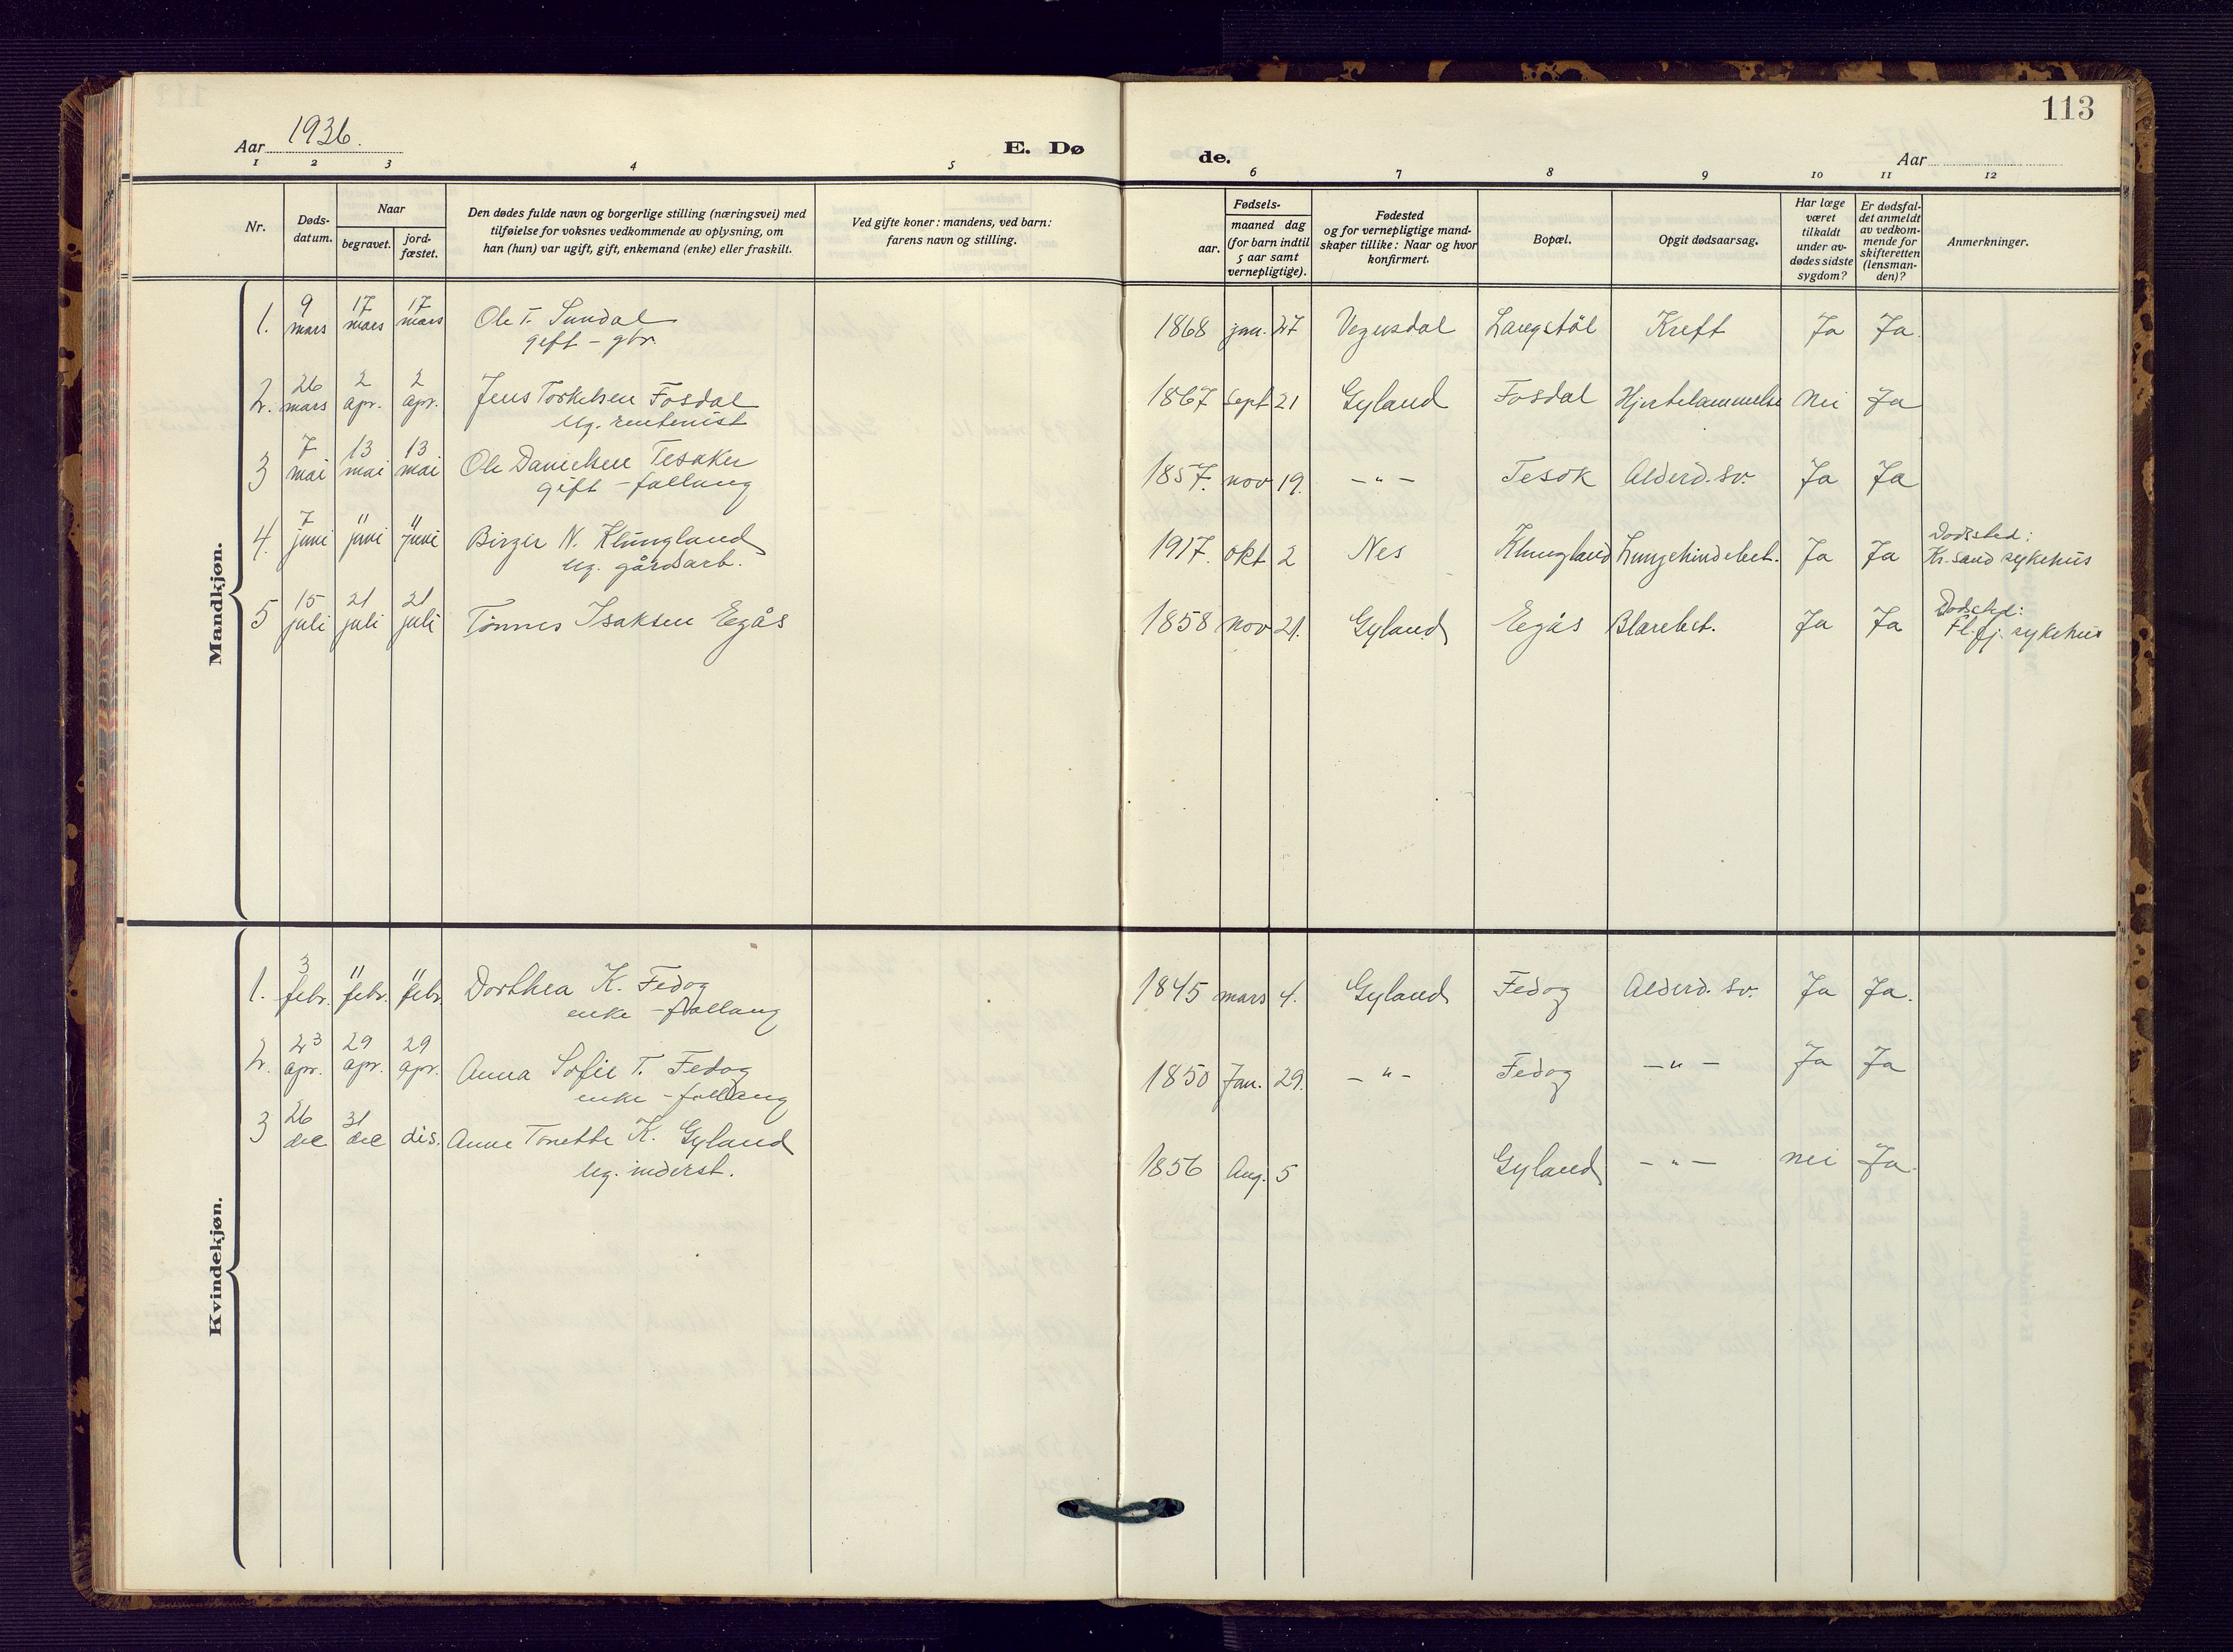 113
Aar 1936.
E. Dø
de.
Aar
1 2 3 4 5 6 7 8 9 10 11 12
Nr.
Døds-
datum.
Naar
begravet.
jord-
fæstet.
Den dødes fulde navn og borgerlige stilling (næringsvei) med
tilføielse for voksnes vedkommende av oplysning, om
han (hun) var ugift, gift, enkemand (enke) eller fraskilt.
Ved gifte koner: mandens, ved barn:
farens navn og stilling.
Fødsels-
aar.
maaned dag
(for barn indtil
5 aar samt
vernepligtige).
Fødested
og for vernepligtige mand-
skaper tillike: Naar og hvor
konfirmert.
Bopæl.
Opgit dødsaarsag.
Har læge
været
tilkaldt
under av-
dødes sidste
sygdom?
Er dødsfal-
det anmeldt
av vedkom-
mende for
skifteretten
(lensman-
den)?
Anmerkninger.
Mandkjøn.
1. 9 mars 17 mars 17 mars Ole T. Sundal 1868 jan. 27 Vegusdal Langstöl Kreft Ja Ja.
gift - gbr.
2. 26 mars 2 apr. 2 apr. Jens Torkelsen Fosdal 1867 Sept 21 Gyland Fosdal Hjertelammelse Nei Ja
ug. rentenist
3 7 mai 13 mai 13 mai Ole Danielsen Tesaker 1857. nov 19. - " - Tesök Alderd. sv. Ja Ja
gift - follaug
4. 7 juni " juni " juni Birger N. Klungland 1917. okt 2 Nes Klungland Lungehindebet. Ja Ja Dodssted:
Kr.sand sykehus
ug. gårdsarb.
5 15 juli 21 juli 21 juli Tönnes Isaksen Egås 1858 nov 21. Gyland Egås Blærebet. Ja Ja Dodssted:
Fl.fj. sykehus
Kvindekjøn.
1. 3 febr. " febr. " febr. Dorthea K. Fedog 1845 mars 4. Gyland Fedog Alderd. sv. Ja Ja.
enke - follaug
2. 23 apr. 29 apr. 29 apr. Anna Sofie T. Fedog 1850 Jan. 29. - " - Fedog - " - Ja Ja
enke - follaug
3 26 dec 31 dec dis. Anne Tonette K. Gyland 1856 Aug. 5 Gyland - " - nei Ja.
ug. inderst.